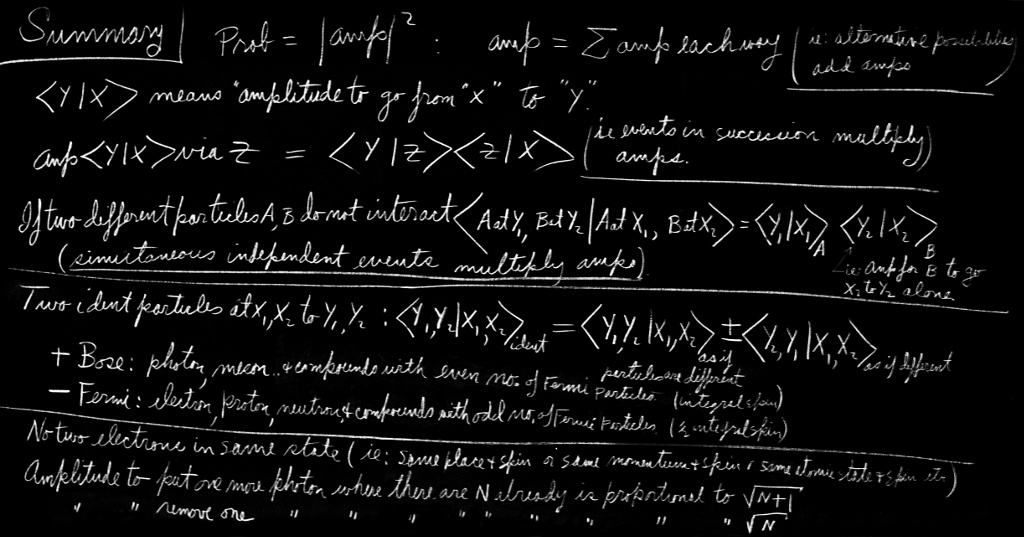 Summary Prob = |amp|² : amp = Σ amp each way (ie: alternative possibilities
add amps
<Y|X> means "amplitude to go from "X" to "Y".
amp<Y|X> via Z = <Y|Z><Z|X> (ie events in succession multiply
amps.)
If two different particles A, B do not interact <A at Y₁, B at Y₂|A at X₁, B at X₂> = <Y₁|X₁>A <Y₂|X₂>B
(simultaneous independent events multiply amps)
ie: amp for B to go
X₂ to Y₂ alone
Two ident particles at X₁, X₂ to Y₁, Y₂ : <Y₁,Y₂|X₁,X₂>ident = <Y₁Y₂|X₁,X₂>as if particles are different ± <Y₂Y₁|X₁X₂>as if different
+ Bose: photon, meson.. & compounds with even no. of Fermi Particles (integral spin)
− Fermi: electron, proton, neutron, & compounds with odd no. of Fermi Particles. (½ integral spin)
No two electrons in same state (ie: same place & spin or same momentum & spin or same atomic state & spin etc)
Amplitude to put one more photon where there are N already is proportional to √N+1
" " remove one " " " " " " " " " √N